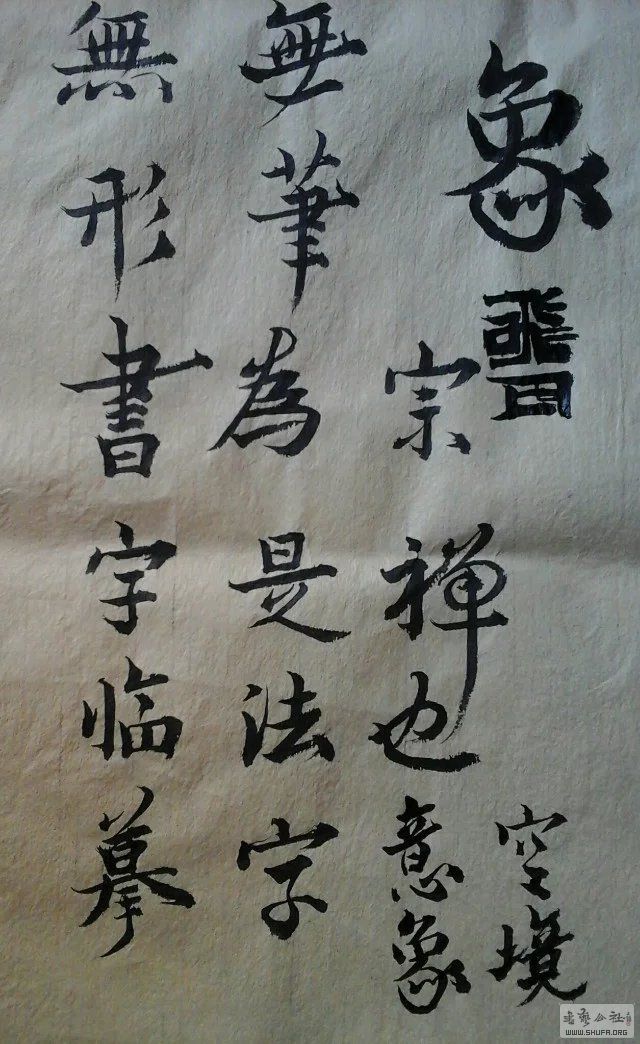 象
空境
宗禅也意象
無筆為是法字
無形書字临摹
书艺公社
WWW.SHUFA.ORG